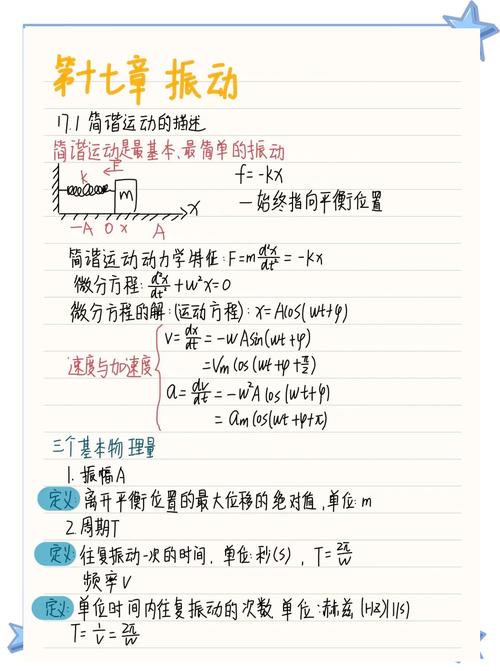 第十七章 振动
17.1 简谐运动的描述
简谐运动是最基本、最简单的振动
k F m x
-A O x A
f=-kx
—始终指向平衡位置
简谐运动动力学特征:F=m\frac{d²x}{dt²}=-kx
微分方程:\frac{d²x}{dt²}+w²x=0
微分方程的解:(运动方程):x=Acos(wt+φ)
速度与加速度
v=\frac{dx}{dt}=-wAsin(wt+φ)
=Vmcos(wt+φ+\frac{π}{2})
a=\frac{dv}{dt}=-w²Acos(wt+φ)
=amcos(wt+φ+π)
三个基本物理量
1. 振幅A
定义:离开平衡位置的最大位移的绝对值,单位:m
2.周期T
定义:往复振动一次的时间,单位:秒(s),T=\frac{2π}{w}
频率ν
定义:单位时间内往复振动的次数 单位:赫兹(HZ)(1/s)
T=\frac{1}{ν}=\frac{2π}{w}